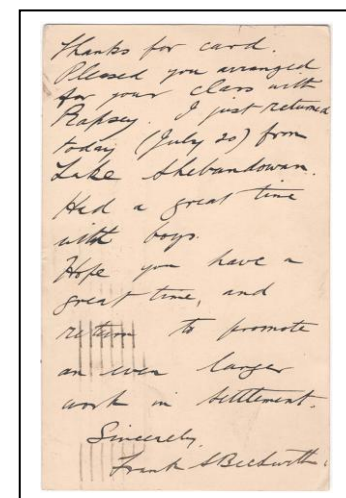 Thanks for card.
Pleased you arranged
for your class with
Rapsey. I just returned
today (July 20) from
Lake Shebandowan.
Had a great time
with boys.
Hope you have a
great time, and
return to promote
an even larger
work in settlement.
Sincerely,
Frank S Beckwith.